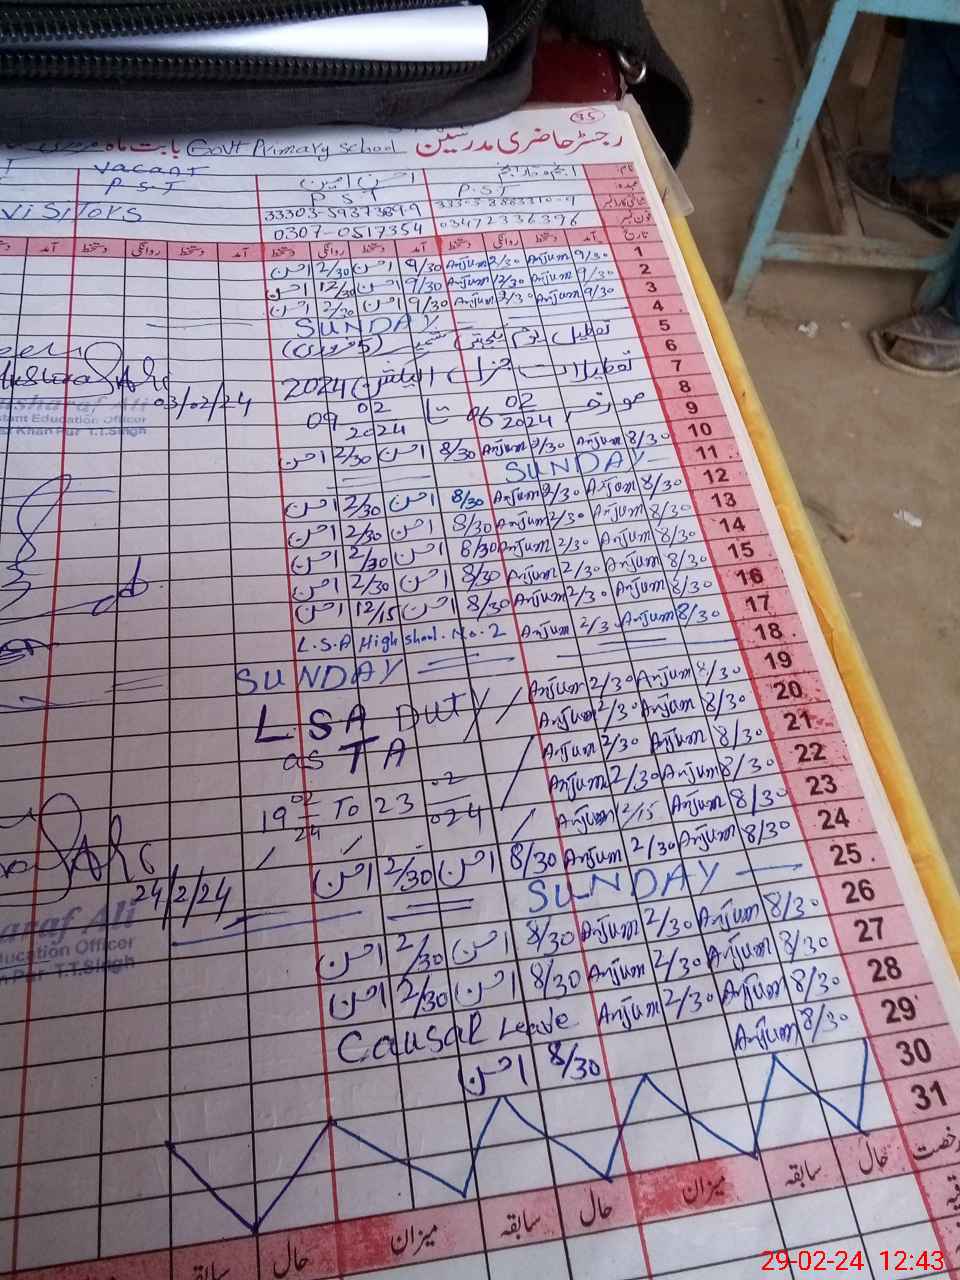 95
رجسٹر حاضری مدرسین Govt Primary School بابت ماہ
نام:
vacant
عہدہ:
P S T P S T P.S.T
VISITORS
شناختی کارڈ نمبر
فون نمبر 03472336396 0307-0517354
تاریخ آمد دستخط روانگی دستخط آمد دستخط روانگی دستخط آمد دستخط روانگی دستخط
1 9/30 Anjum 2/30 Anjum 9/30 احسن 2/30 احسن
2 9/30 Anjum 12/30 Anjum 9/30 احسن 12/30 احسن
3 9/30 Anjum 2/30 Anjum 9/30 احسن 2/30 احسن
4 SUNDAY
5 تعطیل یوم یکجہتی کشمیر (5 فروری)
6
7 تعطیلات جنرل الیکشن 2024
8 مورخہ 06 02 2024 تا 09 02 2024
03/02/24
Asharaf Ali
Assistant Education Officer
Khan Pur T.T.Singh
9
10 8/30 Anjum 2/30 Anjum 8/30 احسن 2/30 احسن
11 SUNDAY
12 8/30 Anjum 2/30 Anjum 8/30 احسن 2/30 احسن
13 8/30 Anjum 2/30 Anjum 8/30 احسن 2/30 احسن
14 8/30 Anjum 2/30 Anjum 8/30 احسن 2/30 احسن
15 8/30 Anjum 2/30 Anjum 8/30 احسن 2/30 احسن
16 8/30 Anjum 2/30 Anjum 8/30 احسن 12/15 احسن
17 8/30 Anjum 2/30 Anjum L.S.A High shool. No. 2
18 SUNDAY
19 8/30 Anjum 2/30 Anjum
20 8/30 Anjum 2/30 Anjum
L S A Duty
21 8/30 Anjum 2/30 Anjum
as T A
22 8/30 Anjum 2/30 Anjum
19 02/24 To 23 02/024
23 8/30 Anjum 12/15 Anjum
24 8/30 Anjum 2/30 Anjum 8/30 احسن 2/30 احسن
24/2/24
araf Ali
ducation Officer
Pur T.T.Singh
25 SUNDAY
26 8/30 Anjum 2/30 Anjum 8/30 احسن 2/30 احسن
27 8/30 Anjum 2/30 Anjum 8/30 احسن 2/30 احسن
28 8/30 Anjum 2/30 Anjum Causal Leave
29 8/30 Anjum 8/30 احسن
30
31
رخصت حال سابقہ میزان حال سابقہ میزان حال سابقہ
29-02-24 12:43